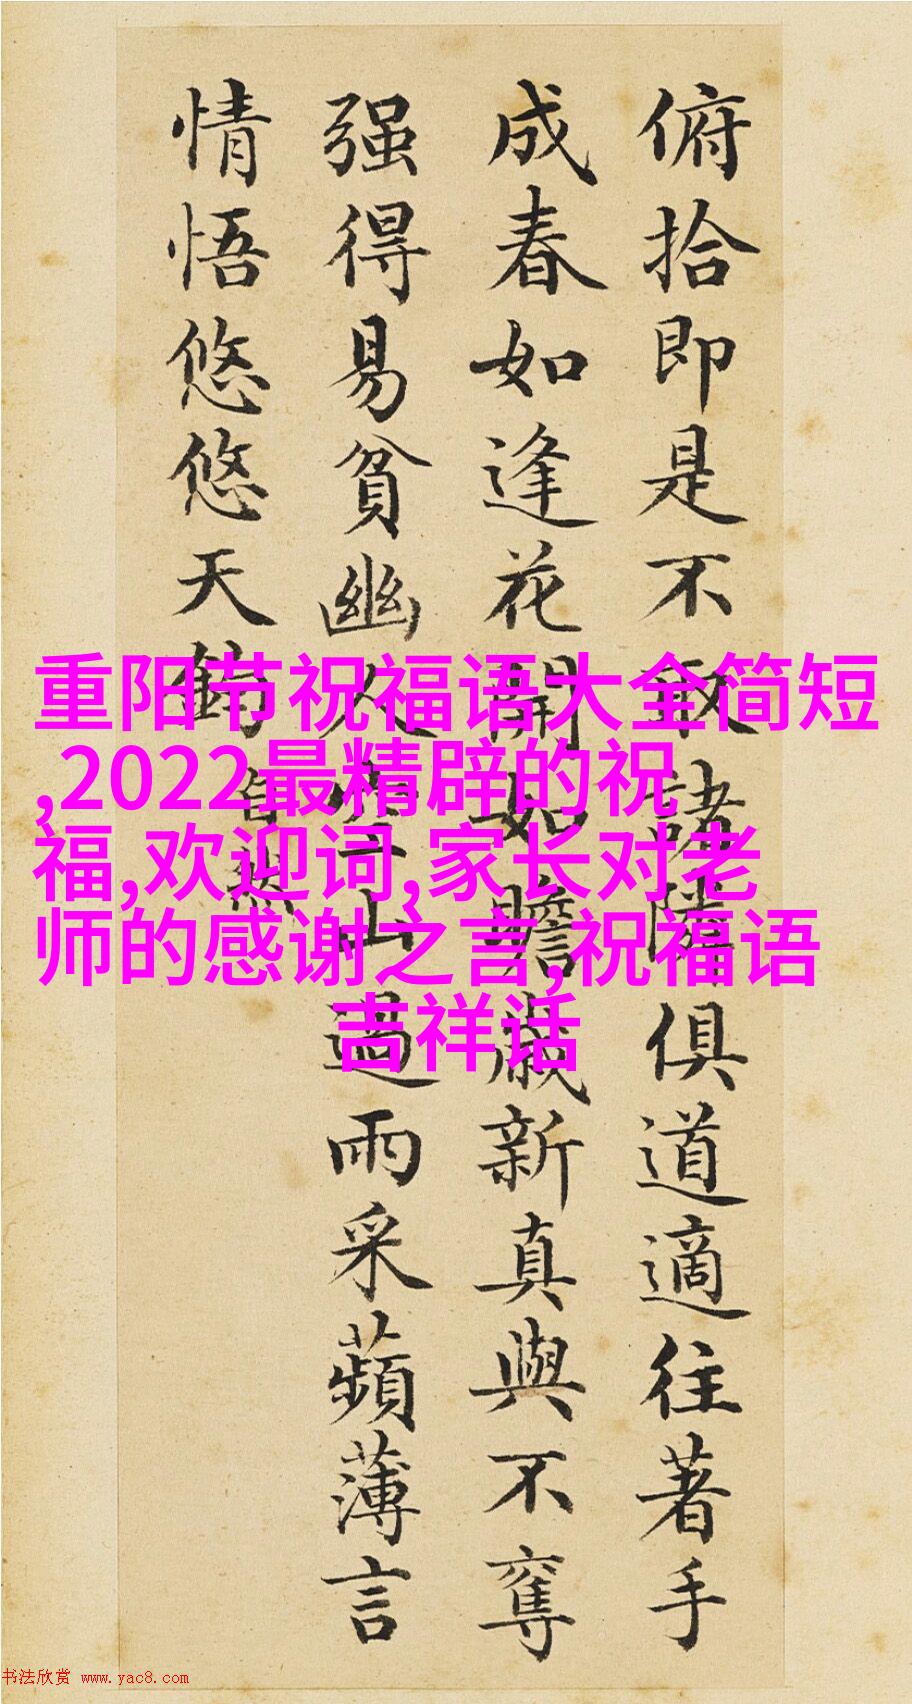 俯拾即是不取諸隣俱道適往著手
成春如逢花開如瞻歲新真與不奪
强得易貧幽人空山過雨采蘋薄言
情悟悠悠天鈞自然
重阳节祝福语大全简短
,2022最精辟的祝
福,欢迎词,家长对老
师的感谢之言,祝福语
吉祥话
书法欣赏 www.yac8.com